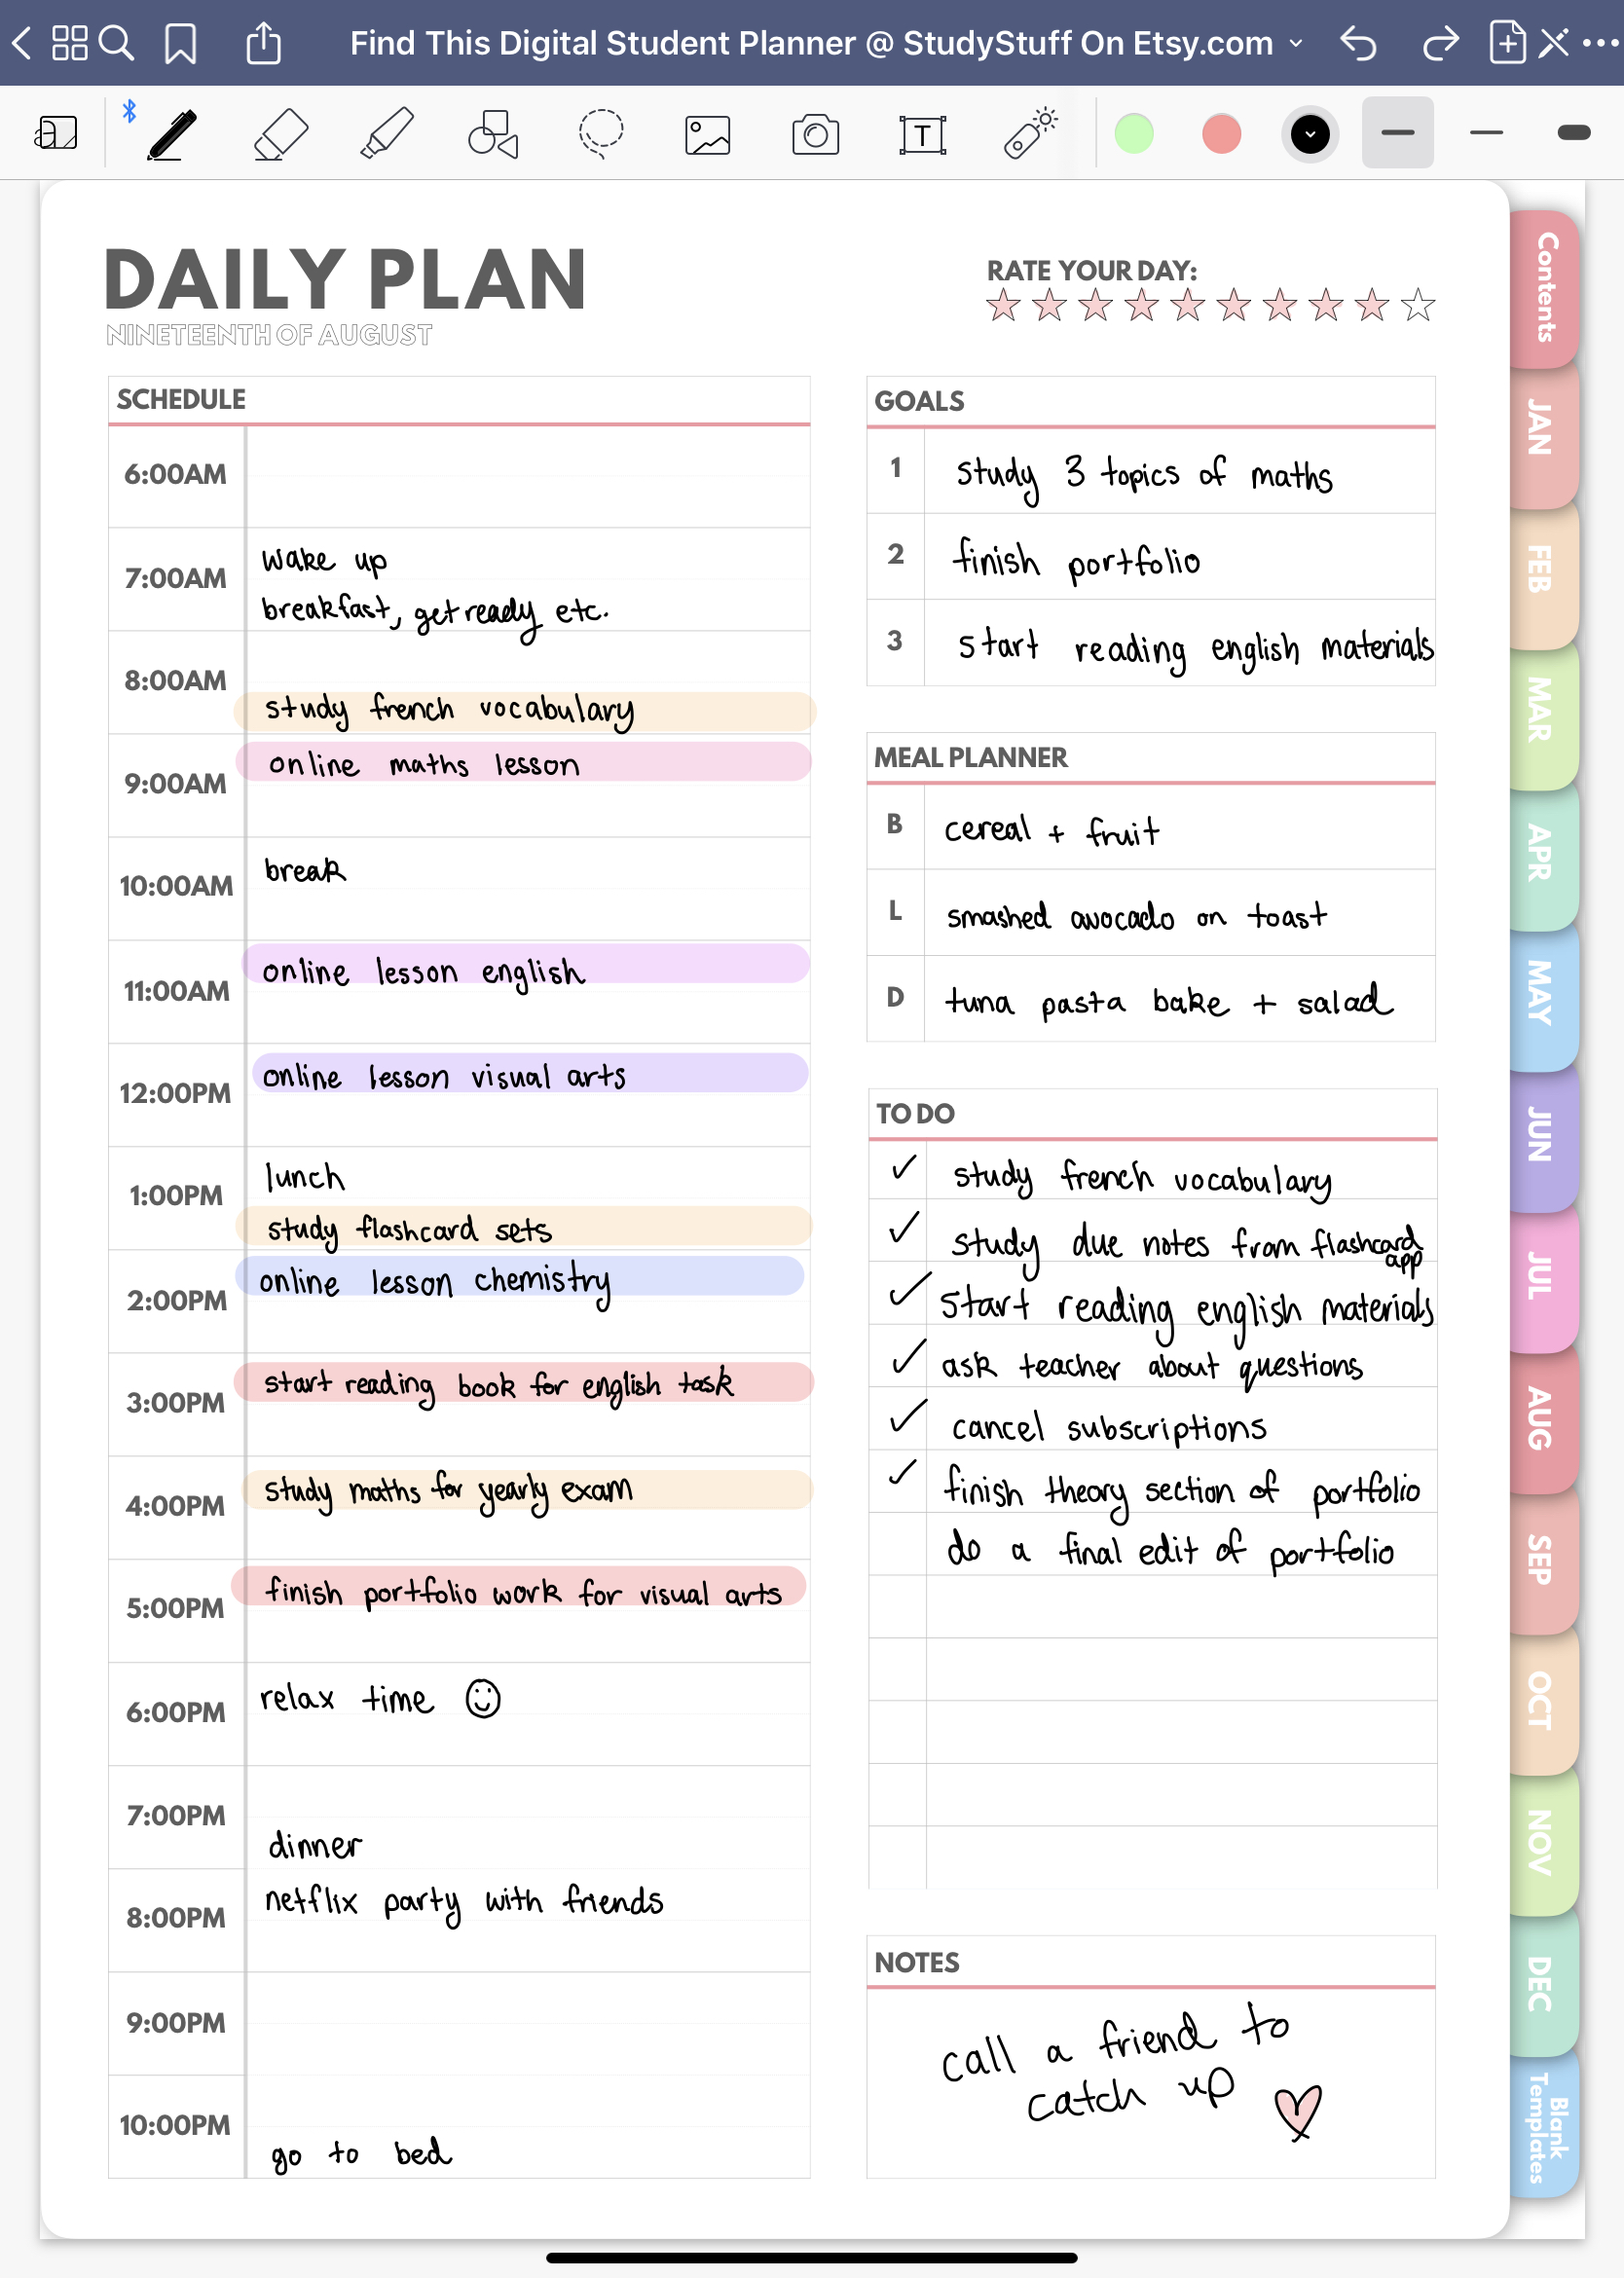 Find This Digital Student Planner @ StudyStuff On Etsy.com
T
DAILY PLAN
NINETEENTH OF AUGUST
RATE YOUR DAY:
SCHEDULE
6:00AM
7:00AM
wake up
breakfast, get ready etc.
8:00AM
study french vocabulary
9:00AM
online maths lesson
10:00AM
break
11:00AM
online lesson english
12:00PM
online lesson visual arts
1:00PM
lunch
study flashcard sets
2:00PM
online lesson chemistry
3:00PM
start reading book for english task
4:00PM
study maths for yearly exam
5:00PM
finish portfolio work for visual arts
6:00PM
relax time
7:00PM
dinner
8:00PM
netflix party with friends
9:00PM
10:00PM
go to bed
GOALS
1 study 3 topics of maths
2 finish portfolio
3 start reading english materials
MEAL PLANNER
B cereal + fruit
L smashed avocado on toast
D tuna pasta bake + salad
TO DO
✓ study french vocabulary
✓ study due notes from flashcard
app
✓ start reading english materials
✓ ask teacher about questions
✓ cancel subscriptions
✓ finish theory section of portfolio
do a final edit of portfolio
NOTES
call a friend to
catch up
Contents
JAN
FEB
MAR
APR
MAY
JUN
JUL
AUG
SEP
OCT
NOV
DEC
Blank
Templates